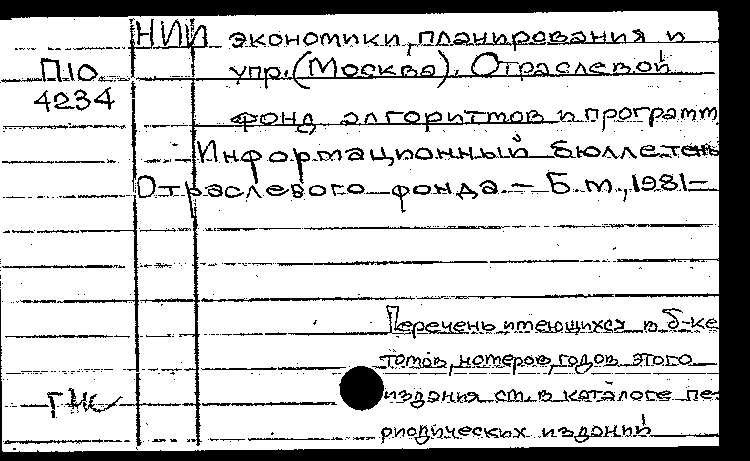 НИИ экономики, планирования и
П10 упр. (Москва). Отраслевой
4234
фонд алгоритмов и программ
Информационный бюллетень
Отраслевого фонда. — Б.м., 1981—
Перечень имеющихся в б-ке
томов, номеров, годов этого
издания см. в каталоге пе-
риодических изданий